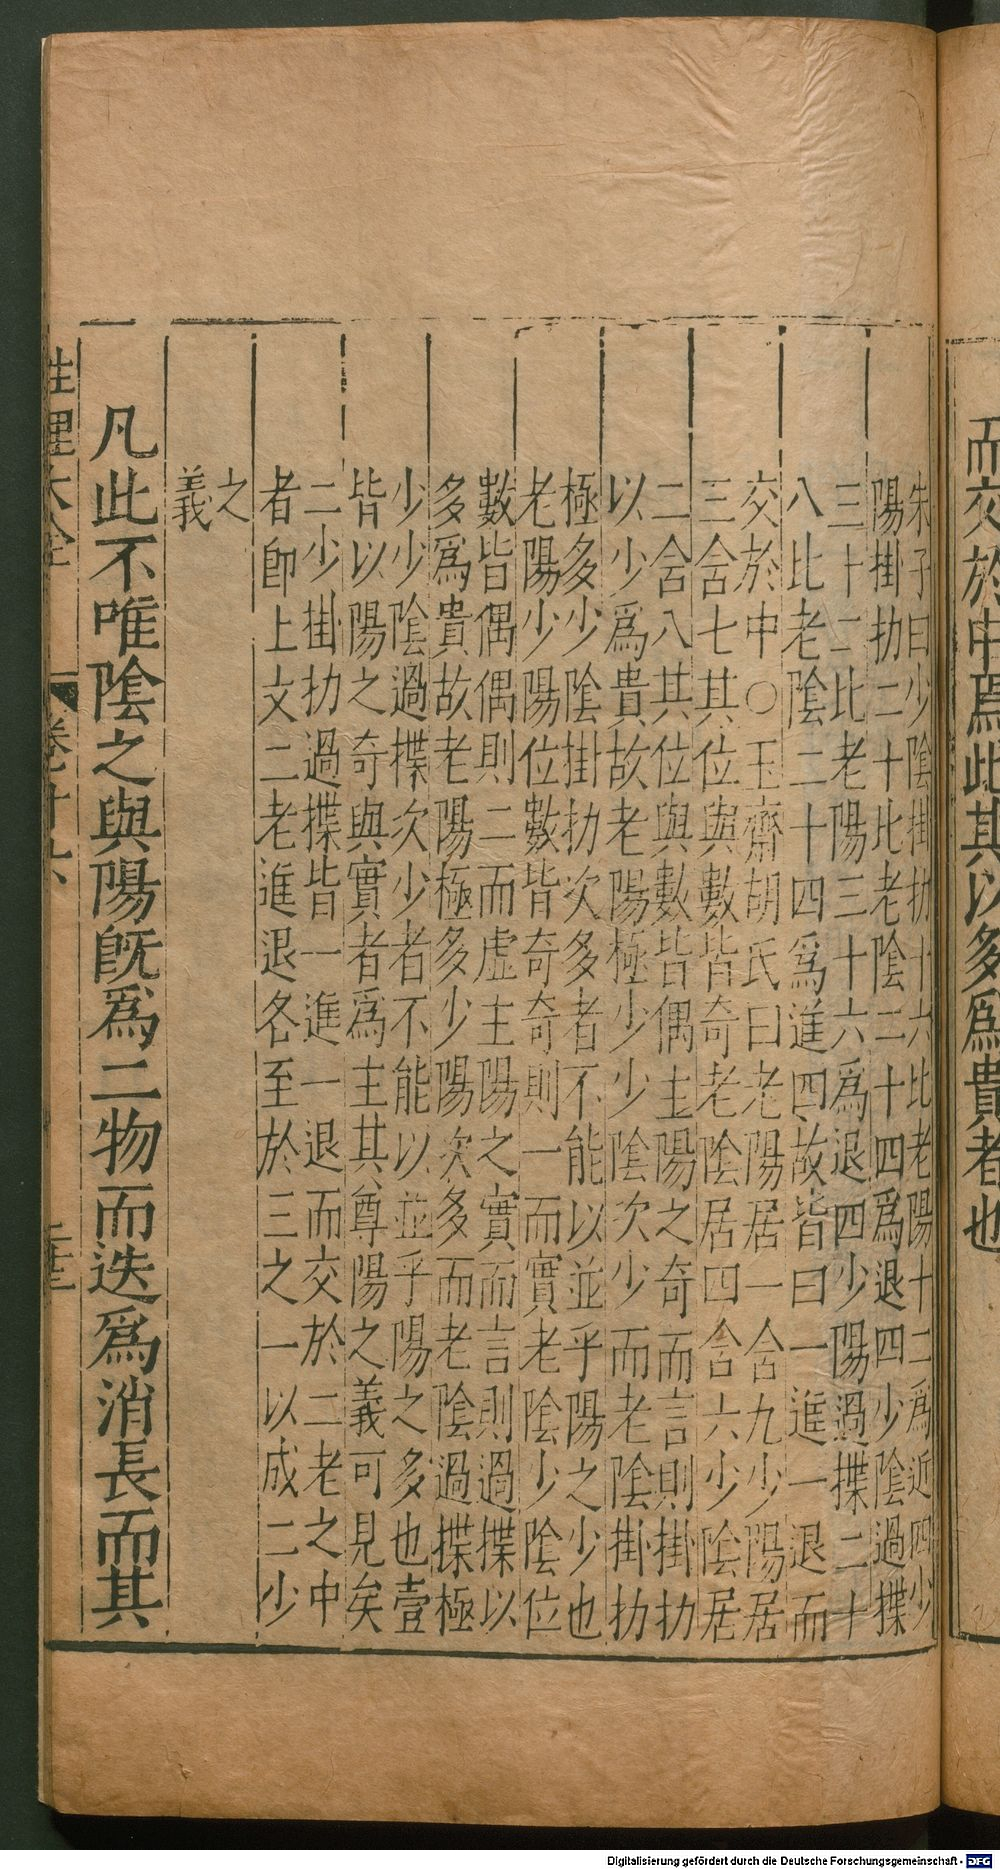 而交於中焉此其以多爲貴者也
朱子曰少陰掛扐十六比老陽十二爲近四少
陽掛扐二十比老陰二十四爲退四少陰過揲
三十二比老陽三十六爲退四少陽過揲二十
八比老陰二十四爲進四故皆曰一進一退而
交於中○玉齋胡氏曰老陽居一含九少陽居
三含七其位與數皆奇老陰居四含六少陰居
二含八其位與數皆偶主陽之奇而言則掛扐
以少爲貴故老陽極少少陰次少而老陰掛扐
極多少陰掛扐次多者不能以並乎陽之少也
老陽少陽位數皆奇奇則一而實老陰少陰位
數皆偶偶則二而虛主陽之實而言則過揲以
多爲貴故老陽極多少陽次多而老陰過揲極
少少陰過揲次少者不能以並乎陽之多也壹
皆以陽之奇與實者爲主其尊陽之義可見矣
二少掛扐過揲皆一進一退而交於二老之中
者卽上文二老進退各至於三之一以成二少
之
義
凡此不唯陰之與陽旣爲二物而迭爲消長而其
性理大全 卷十六
Digitalisierung gefördert durch die Deutsche Forschungsgemeinschaft - DFG